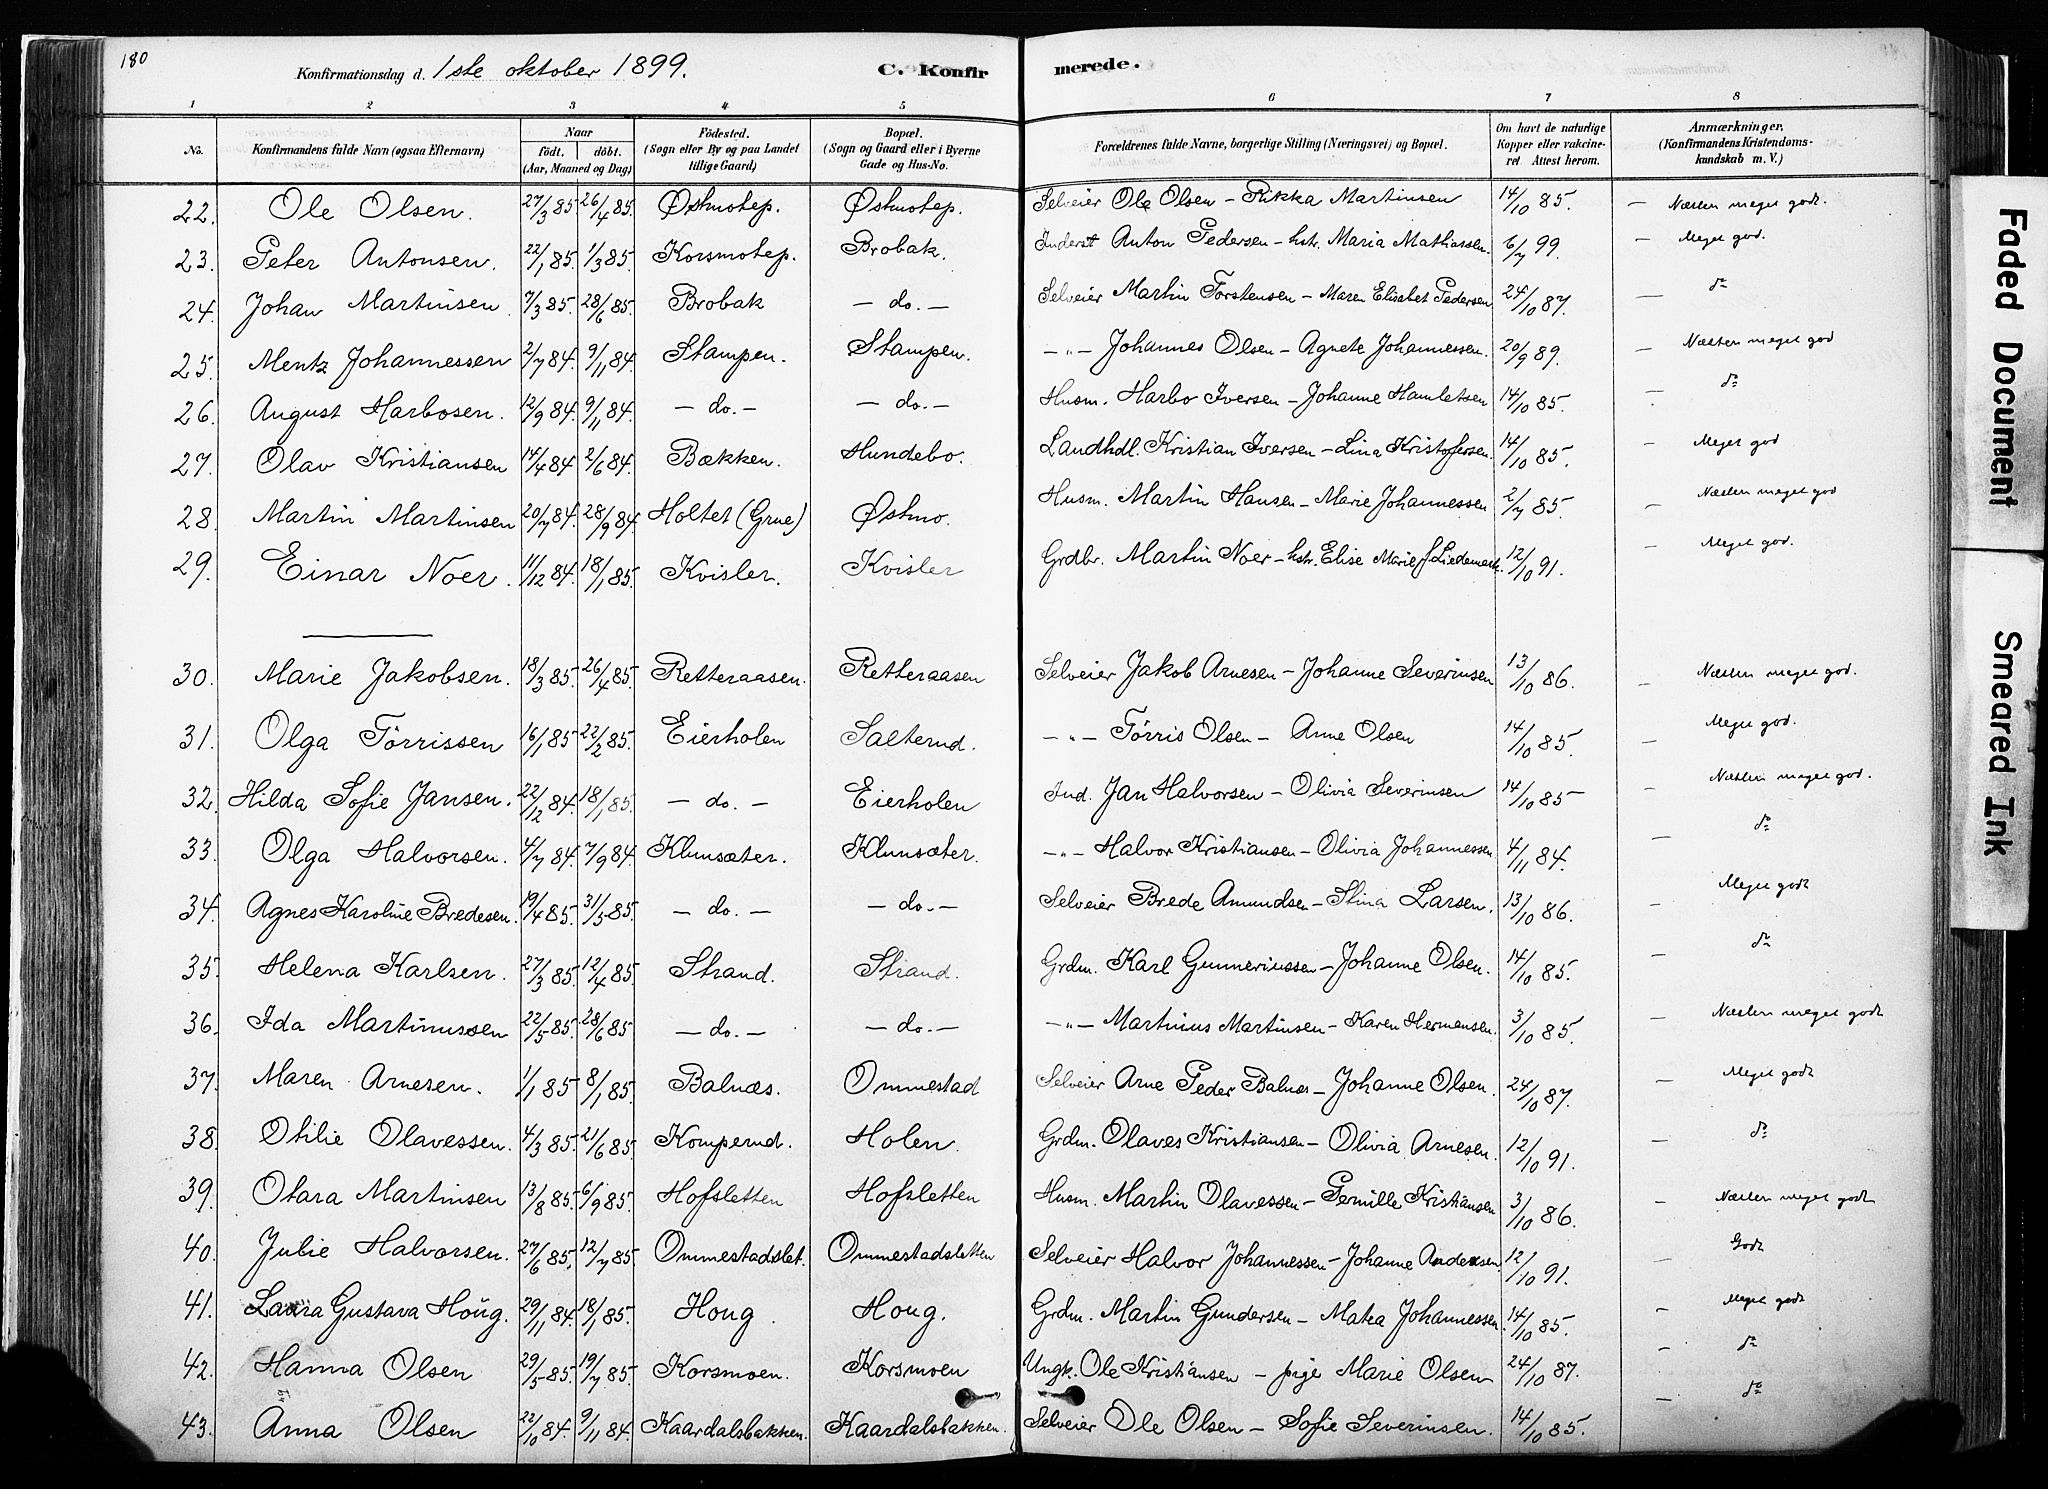 180
Konfirmationsdag d. 1ste oktober 1899. C. Konfir merede.
1 2 3 4 5 6 7 8
No. Konfirmandens fulde Navn (ogsaa Efternavn) Naar födt. döbt. (Aar, Maaned og Dag) Födested. (Sogn eller By og paa Landet tillige Gaard) Bopæl. (Sogn og Gaard eller i Byerne Gade og Hus-No. Forældrenes fulde Navne, borgerlige Stilling (Næringsvei) og Bopæl. Om havt de naturlige Kopper eller vakcineret. Attest herom. Anmærkninger. (Konfirmandens Kristendomskundskab m. V.)
22. Ole Olsen. 27/3 85 26/4 85. Østmotep. Østmotep. Selveier Ole Olsen – Rikka Martinsen 14/10 85. – Næsten meget godt.
23. Peter Antonsen. 22/1 85. 1/3 85. Korsmotep. Brobak. Inderst Anton Pedersen – hstr. Maria Mathiassen. 6/7 99. – Meget god.
24. Johan Martinsen 7/3 85. 28/6 85. Brobak – do. – Selveier Martin Torstensen – Maren Elisabet Pedersen 24/10 87. – do
25. Mentz Johannessen 2/7 84. 9/11 84. Stampen. Stampen. – „ – Johannes Olsen – Agnete Johannessen. 20/9 89. – Næsten meget god
26. August Harbosen. 12/9 84. 9/11 84. – do. – – do. – Husm. Harbo Iversen – Johanne Hamletsen 14/10 85. – do
27. Olav Kristiansen 14/4 84 2/6 84. Bækken. Hundebo. Landhdl. Kristian Iversen – Lina Kristofersen. 14/10 85. – Meget god
28. Martin Martinsen 20/7 84. 28/9 84. Holtet (Grue) Østmo. Husm. Martin Hansen – Marie Johannessen 2/7 85. – Næsten meget god
29. Einar Noer. 11/12 84. 18/1 85. Kvisler. Kvisler Grdbr. Martin Noer – hstr. Elise Marie J Liedemark. 12/10 91. – Meget god.
30. Marie Jakobsen. 18/3 85. 26/4 85. Retteraasen. Retteraasen Selveier Jakob Arnesen – Johanne Severinsen 13/10 86. – Næsten meget god.
31. Olga Törrissen 16/1 85 22/2 85. Eierholen Salterud. – „ – Törris Olsen – Anne Olsen 14/10 85. – Meget god.
32. Hilda Sofie Jansen. 22/12 84. 18/1 85. – do. – Eierholen Ind. Jan Halvorsen – Olivia Severinsen 14/10 85 – Næsten meget god.
33. Olga Halvorsen. 4/7 84. 7/9 84 Klunsæter. Klunsæter. – „ – Halvor Kristiansen – Olivia Johannessen 4/11 84. – do
34. Agnes Karoline Bredesen. 19/4 85. 31/5 85. – do. – – do. – Selveier Brede Amundsen – Stina Larsen. 13/10 86. – Meget godt
35. Helena Karlsen. 27/3 85. 12/4 85. Strand. Strand. Grdm. Karl Gunneriussen – Johanne Olsen. 14/10 85. – do
36. Ida Martinussen 22/5 85. 28/6 85 – do. – – do. – – „ – Martinius Martinsen – Karen Hermansen. 3/10 85. – Næsten meget godt
37. Maren Arnesen. 1/1 85 8/1 85. Balnæs. Ommestad Selveier Arne Peder Balnæs – Johanne Olsen. 24/10 87. – Meget godt
38. Otilie Olavessen. 4/3 85. 21/6 85. Komperud. Holen. Grdm. Olaves Kristiansen – Olivia Arnesen. 12/10 91. – do
39. Otara Martinsen 13/8 85. 6/9 85. Hofsletten Hofsletten Husm. Martin Olavessen – Pernille Kristiansen 3/10 86. – Næsten meget godt
40. Julie Halvorsen. 27/6 85. 12/7 85. Ommestadslet. Ommestadsletten Selveier Halvor Johannessen – Johanne Andersen. 12/10 91. – Godt
41. Laura Gustava Houg. 29/11 84. 18/1 85. Houg. Houg. Grdm. Martin Gundersen – Matea Johannessen. 14/10 85. – Meget godt
42. Hanna Olsen 29/5 85. 19/7 85. Korsmoen. Korsmoen Ungk. Ole Kristiansen – pige Marie Olsen 24/10 87. – do
43. Anna Olsen 22/10 84. 9/11 84. Kaardalsbakken. Kaardalsbakken. Selveier Ole Olsen – Sofie Severinsen. 14/10 85. – do
Faded Document
Smeared Ink